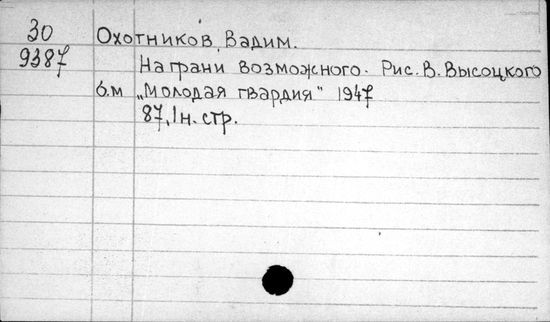 30
9387
Охотников, Вадим.
На грани возможного. Рис. В. Высоцкого
б.м „Молодая гвардия" 1947
87, 1 н. стр.